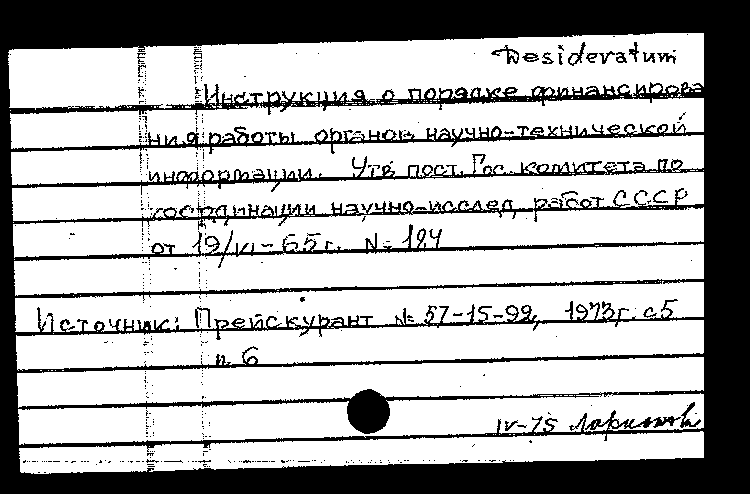 Desideratum
Инструкция о порядке финансирова
ния работы органов научно-технической
информации. Утв. пост. Гос. комитета по
координации научно-исслед. работ СССР
от 19/VI-65г. № 184
Источник: Прейскурант № 57-15-92, 1973г. с5
п. 6
IV-75